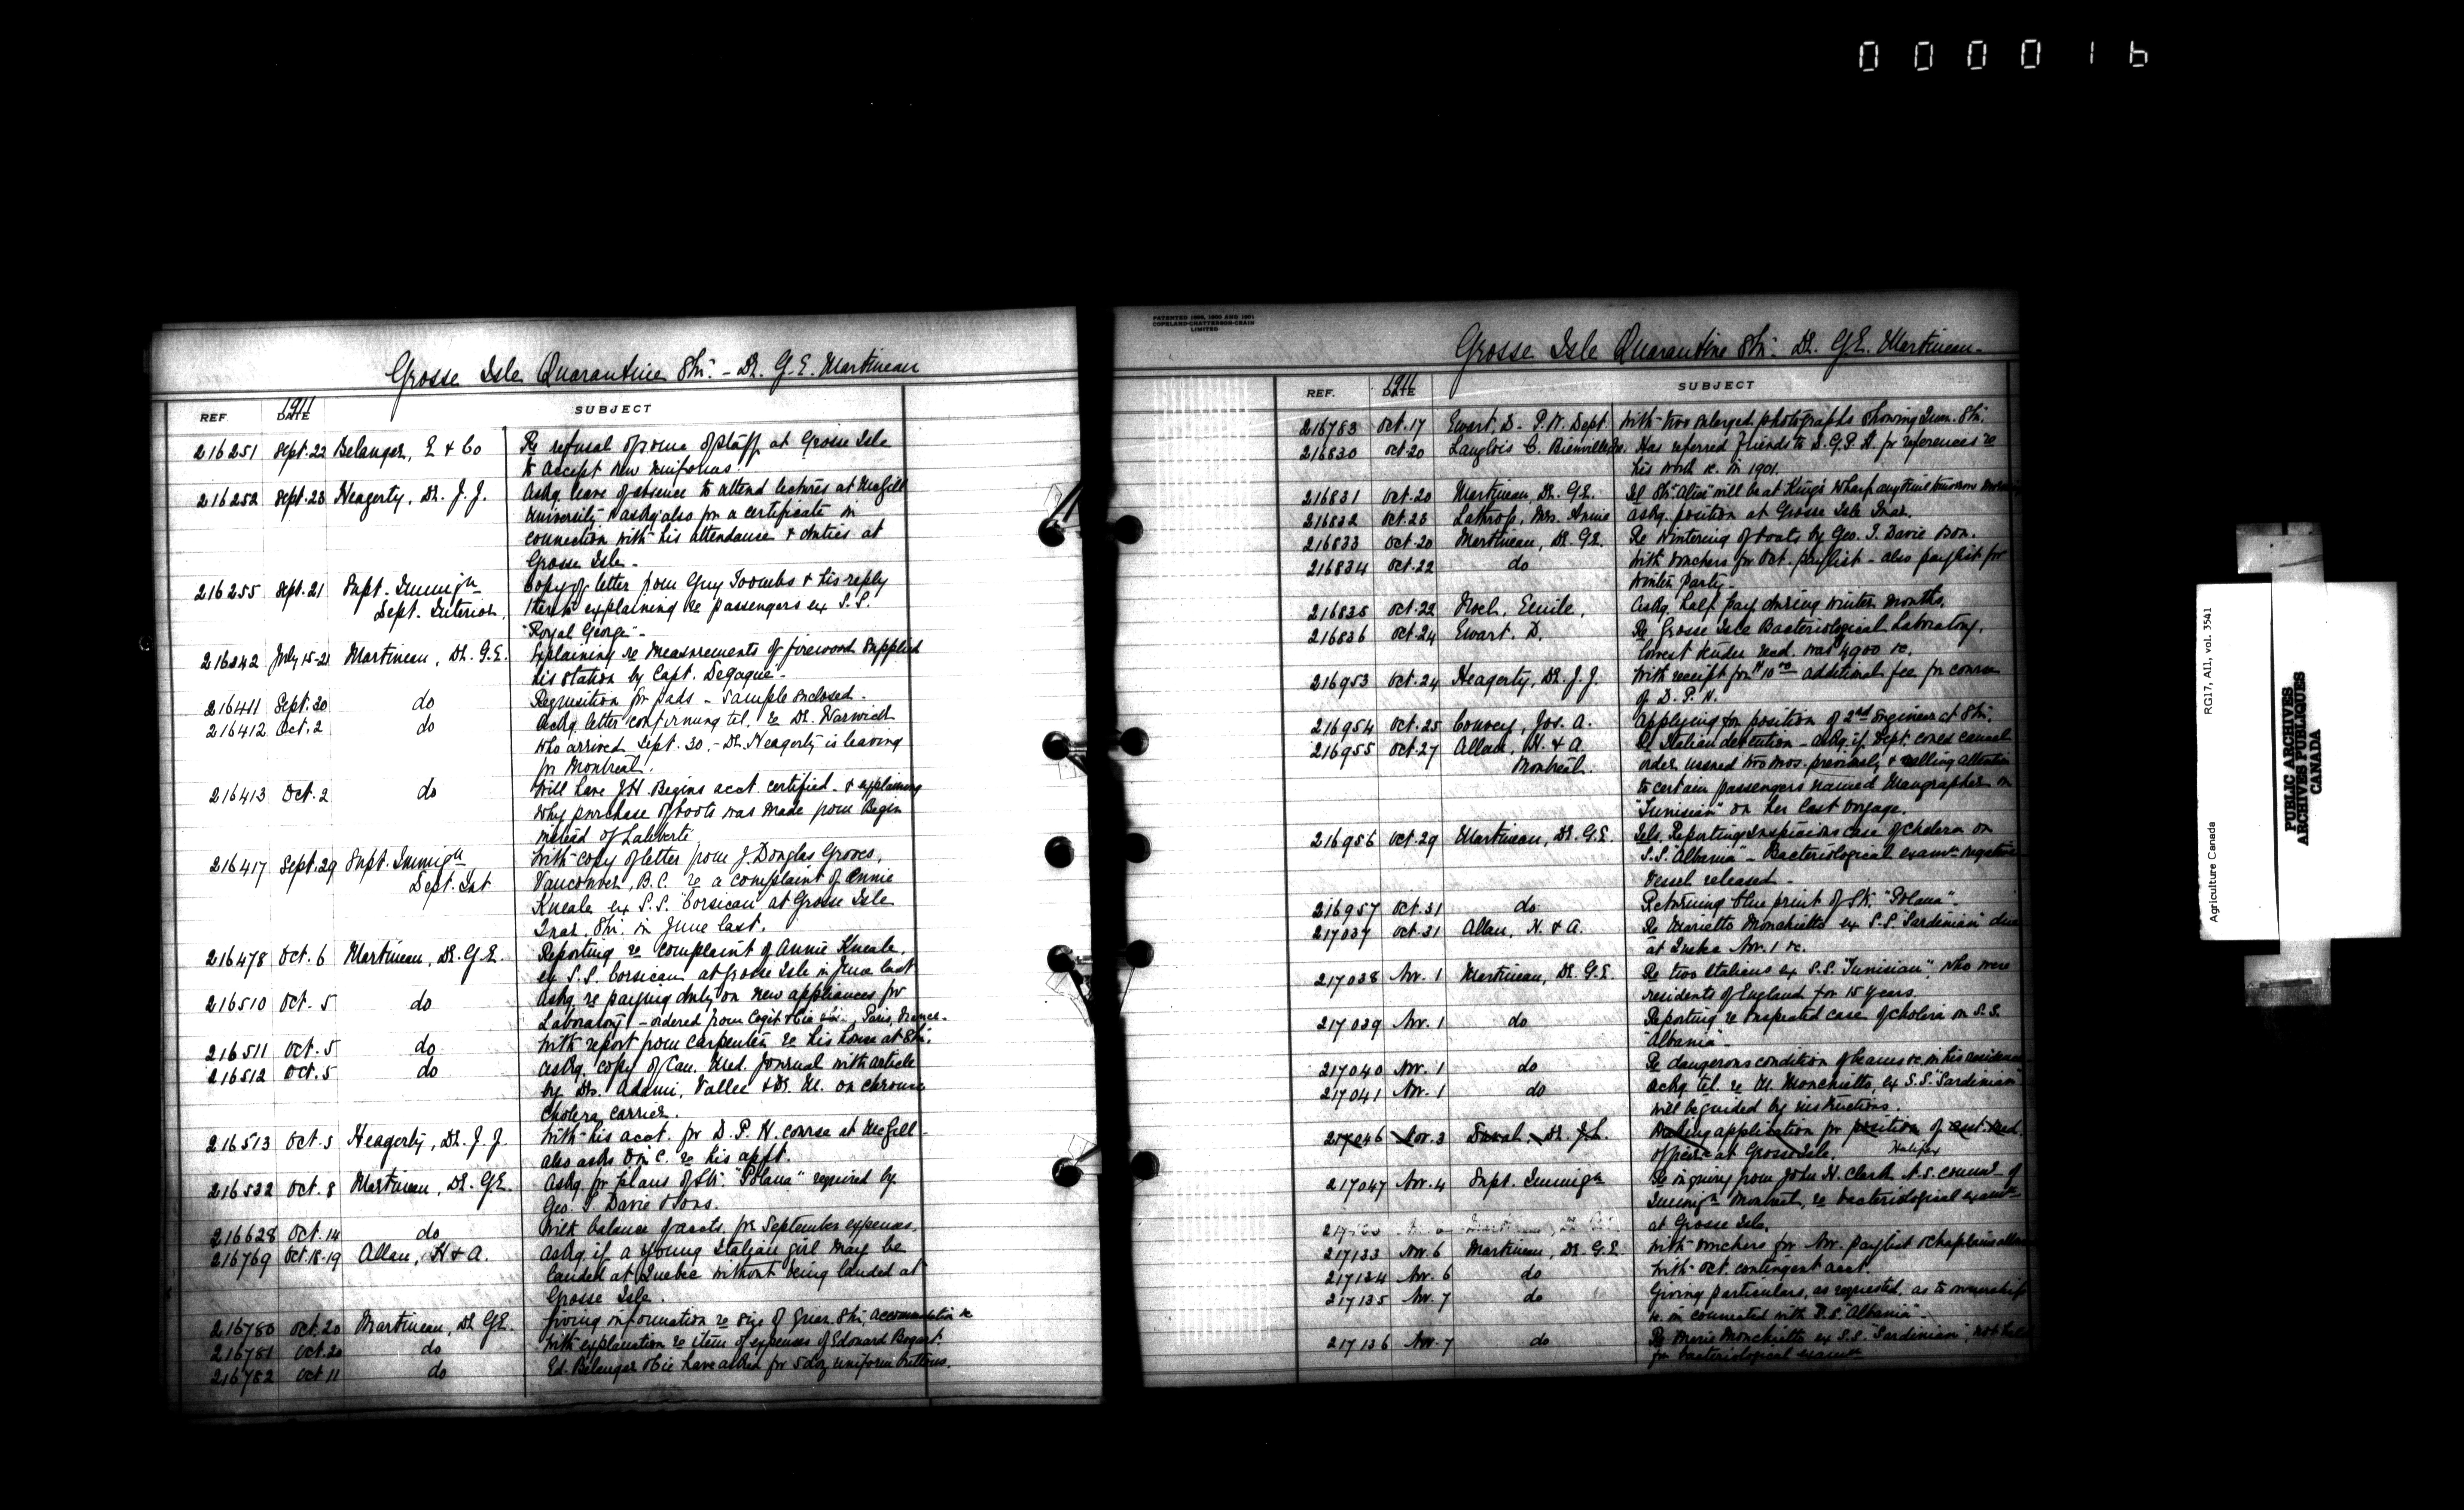 000016
Grosse Isle Quarantine Stn. - Dr. G.E. Martineau
REF. 1911 DATE SUBJECT
216251 Sept. 22 Belanger, E & Co Re refusal of some of staff at Grosse Isle
to accept new uniforms.
216252 Sept. 23 Heagerty, Dr. J. J. Askg. leave of absence to attend lectures at McGill
University & askg also for a certificate in
connection with his attendance & duties at
Grosse Isle -
216255 Sept. 21 Supt. Immign Copy of letter from Guy Toombs & his reply
Dept. Interior. thereto explaining re passengers ex S.S.
"Royal George" -
216342 July 15-21 Martineau, Dr. G.E. Explaining re measurements of firewood supplied
his station by Capt. Degagué -
216411 Sept. 30 do Requisition for pads - sample enclosed.
216412 Oct. 2 do Ackg. letter confirming tel. re Dr. Warwick
who arrived Sept. 30. - Dr. Heagerty is leaving
for Montreal.
216413 Oct. 2 do Will have J.H. Begins acct. certified - & explaining
why purchase of boots was made from Begin
instead of Laliberté
216417 Sept. 29 Supt. Immign With copy of letter from J. Douglas Groves,
Dept. Int Vancouver, B.C. re a complaint of Annie
Kneale ex S.S. "Corsican" at Grosse Isle
Quar. Stn. in June last.
216478 Oct. 6 Martineau, Dr. G.E. Reporting re complaint of Annie Kneale.
ex S.S. Corsican at Grosse Isle in June last
216510 Oct. 5 do Askg. re paying duty on new appliances for
Laboratory - ordered from Cogit & Cie Paris, France.
216511 Oct. 5 do With report from carpenter re his house at Stn.
216512 Oct. 5 do Askg. copy of Can. Med. Journal with article
by Drs. Adami, Vallee & Dr. M. on chronic
cholera carrier.
216513 Oct. 5 Heagerty, Dr. J. J. With his acct. for D. P. H. course at McGill -
also asks O in C. re his appt.
216532 Oct. 8 Martineau, Dr. G.E. Askg. for plans of Str. "Polana" required by
Geo. T. Davie & Sons.
216628 Oct. 14 do With balance of accts. for September expenses.
216769 Oct. 18-19 Allan, H & A. Askg. if a young Italian girl may be
landed at Quebec without being landed at
Grosse Isle.
216780 Oct. 20 Martineau, Dr G.E. Giving information re size of Quar. Stn, accommodation &c
216781 Oct. 20 do With explanation re item of expenses of Edouard Bogart.
216782 Oct 11 do Ed. Belanger & Cie have asked for 5 doz uniform buttons.
PATENTED 1896, 1900 AND 1901
COPELAND-CHATTERSON-CRAIN
LIMITED
Grosse Isle Quarantine Stn. Dr. G.E. Martineau -
REF. 1911 DATE SUBJECT
216783 Oct. 17 Ewart, D. - P.W. Dept With two enlarged photographs showing Quar. Stn.
216830 Oct. 20 Langlois C. Bienville Has referred friends to D.G.P.H. for references re
his work &c. in 1901.
216831 Oct. 20 Martineau, Dr. G.E. Tel Str "Alice" will be at Kings Wharf anytime tomorrow
216832 Oct. 23 Lathrop, Mrs. Annie Askg. position at Grosse Isle Quar.
216833 Oct. 20 Martineau, Dr. G.E. Re wintering of boats by Geo. T. Davie & Son.
216834 Oct. 22 do With vouchers for Oct. paylist - also paylist for
Winter Party -
216835 Oct. 22 Noel, Emile, Askg. half pay during winter months.
216836 Oct. 24 Ewart. D. Re Grosse Isle Bacteriological Laboratory.
lowest tender recd. was $4900 &c.
216953 Oct. 24 Heagerty, Dr. J. J. With receipt for $10.00 additional fee for course
of D. P. H.
216954 Oct. 25 Convey, Jos. A. Applying for position of 2nd Engineer at Stn.
216955 Oct. 27 Allan, H. & A. Re Italian detention - askg. if Dept. could cancel
Montreal. order issued two mos. previously & calling attention
to certain passengers named Maugrapher on
"Tunisian" on her last voyage.
216956 Oct. 29 Martineau, Dr. G.E. Tels. Reporting suspicious case of cholera on
S.S. "Albania" - Bacteriological examn negative
Vessel released -
216957 Oct. 31 do Returning blue print of Str. "Polana".
217037 Oct. 31 Allan, H. & A. Re Marietto Monchietto ex S.S. "Sardinian" due
at Quebec Nov. 1 &c.
217038 Nov. 1 Martineau, Dr. G.E. Re two Italians ex S.S. "Tunisian", who were
residents of England for 15 years.
217039 Nov. 1 do Reporting re suspected case of cholera on S.S.
"Albania" -
217040 Nov. 1 do Re dangerous condition of beams &c. in his residence
217041 Nov. 1 do Ackg. tel. re M. Monchietto, ex S.S. "Sardinian"
will be guided by instructions.
217046 Nov. 3 Duval, Dr. J.L. Making application for position of asst. Med.
officer at Grosse Isle. Halifax
217047 Nov. 4 Supt. Immign Re inquiry from John H. Clark U.S. Commr of
Immign Montreal, re bacteriological examn
at Grosse Isle.
217133 Nov. 6 Martineau, Dr. G.E. With vouchers for Nov. paylist & chaplains
217134 Nov. 6 do With Oct. contingent acct.
217135 Nov. 7 do Giving particulars, as requested, as to ownership
&c. in connected with S.S. "Albania" -
217136 Nov. 7 do Re Marie Monchietto ex S.S. "Sardinian", not held
for bacteriological examn
Agriculture Canada RG17, AII, vol. 3541
PUBLIC ARCHIVES
ARCHIVES PUBLIQUES
CANADA